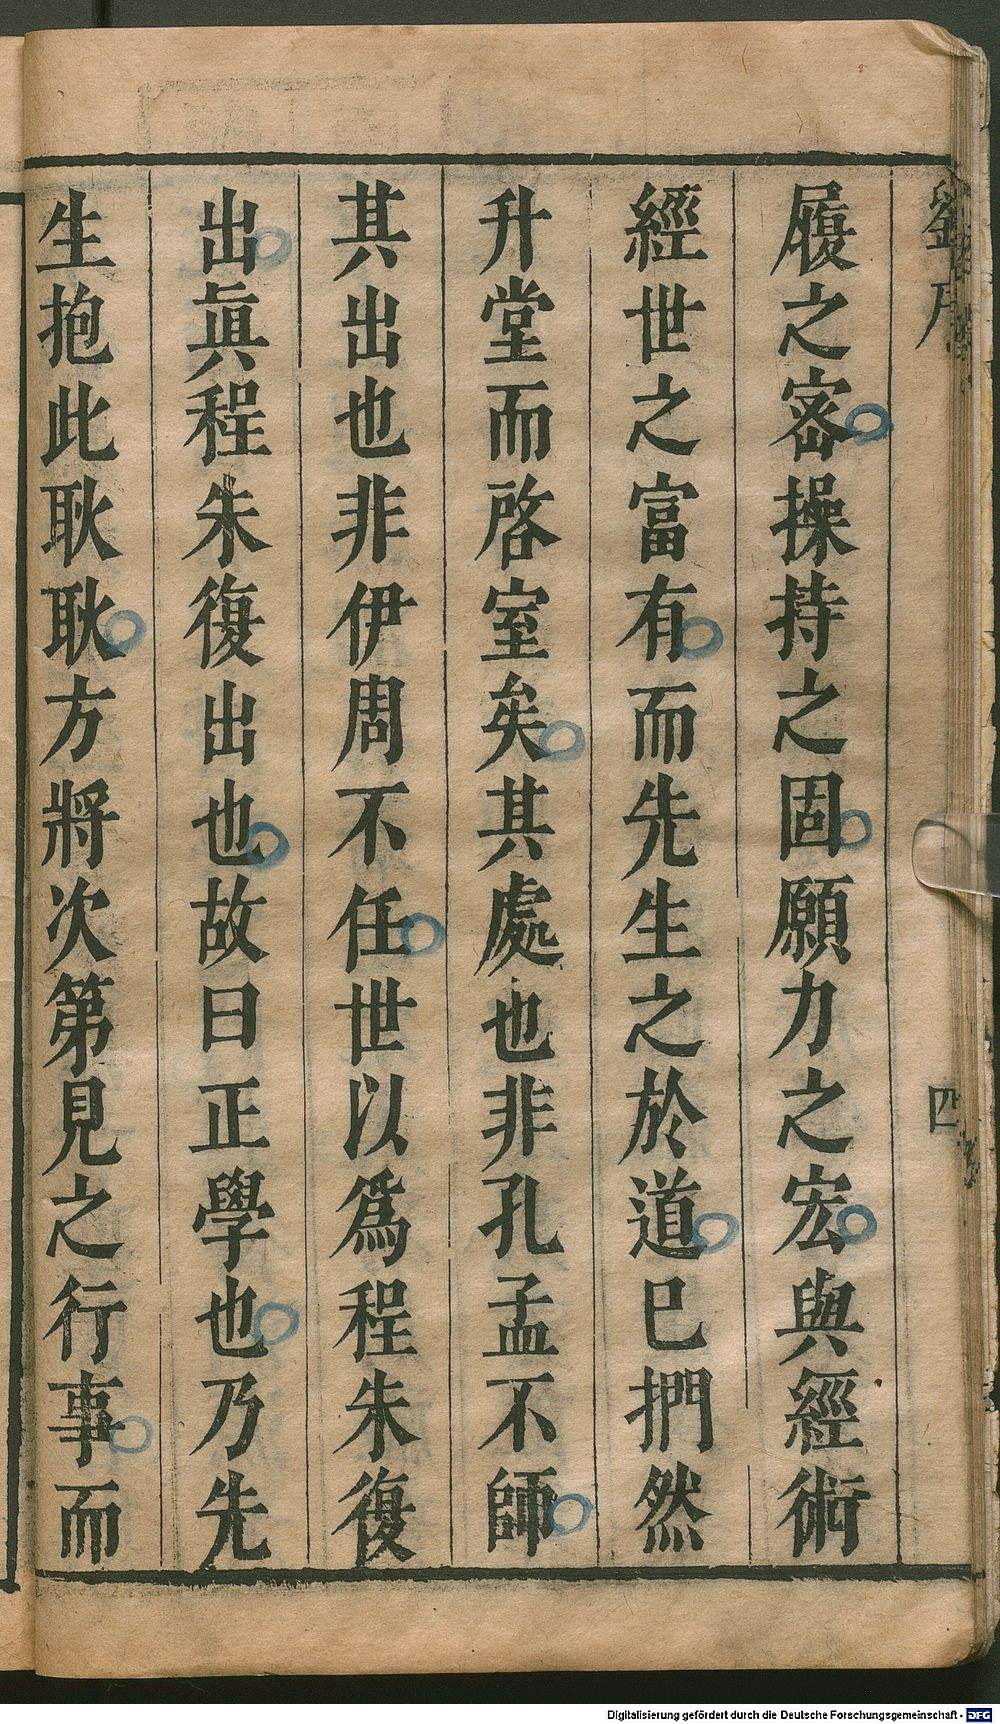 劉序
四
履之密操持之固願力之宏與經術
經世之富有而先生之於道已捫然
升堂而啓室矣其處也非孔孟不師
其出也非伊周不任世以爲程朱復
出眞程朱復出也故曰正學也乃先
生抱此耿耿方將次第見之行事而
Digitalisierung gefördert durch die Deutsche Forschungsgemeinschaft - DFG